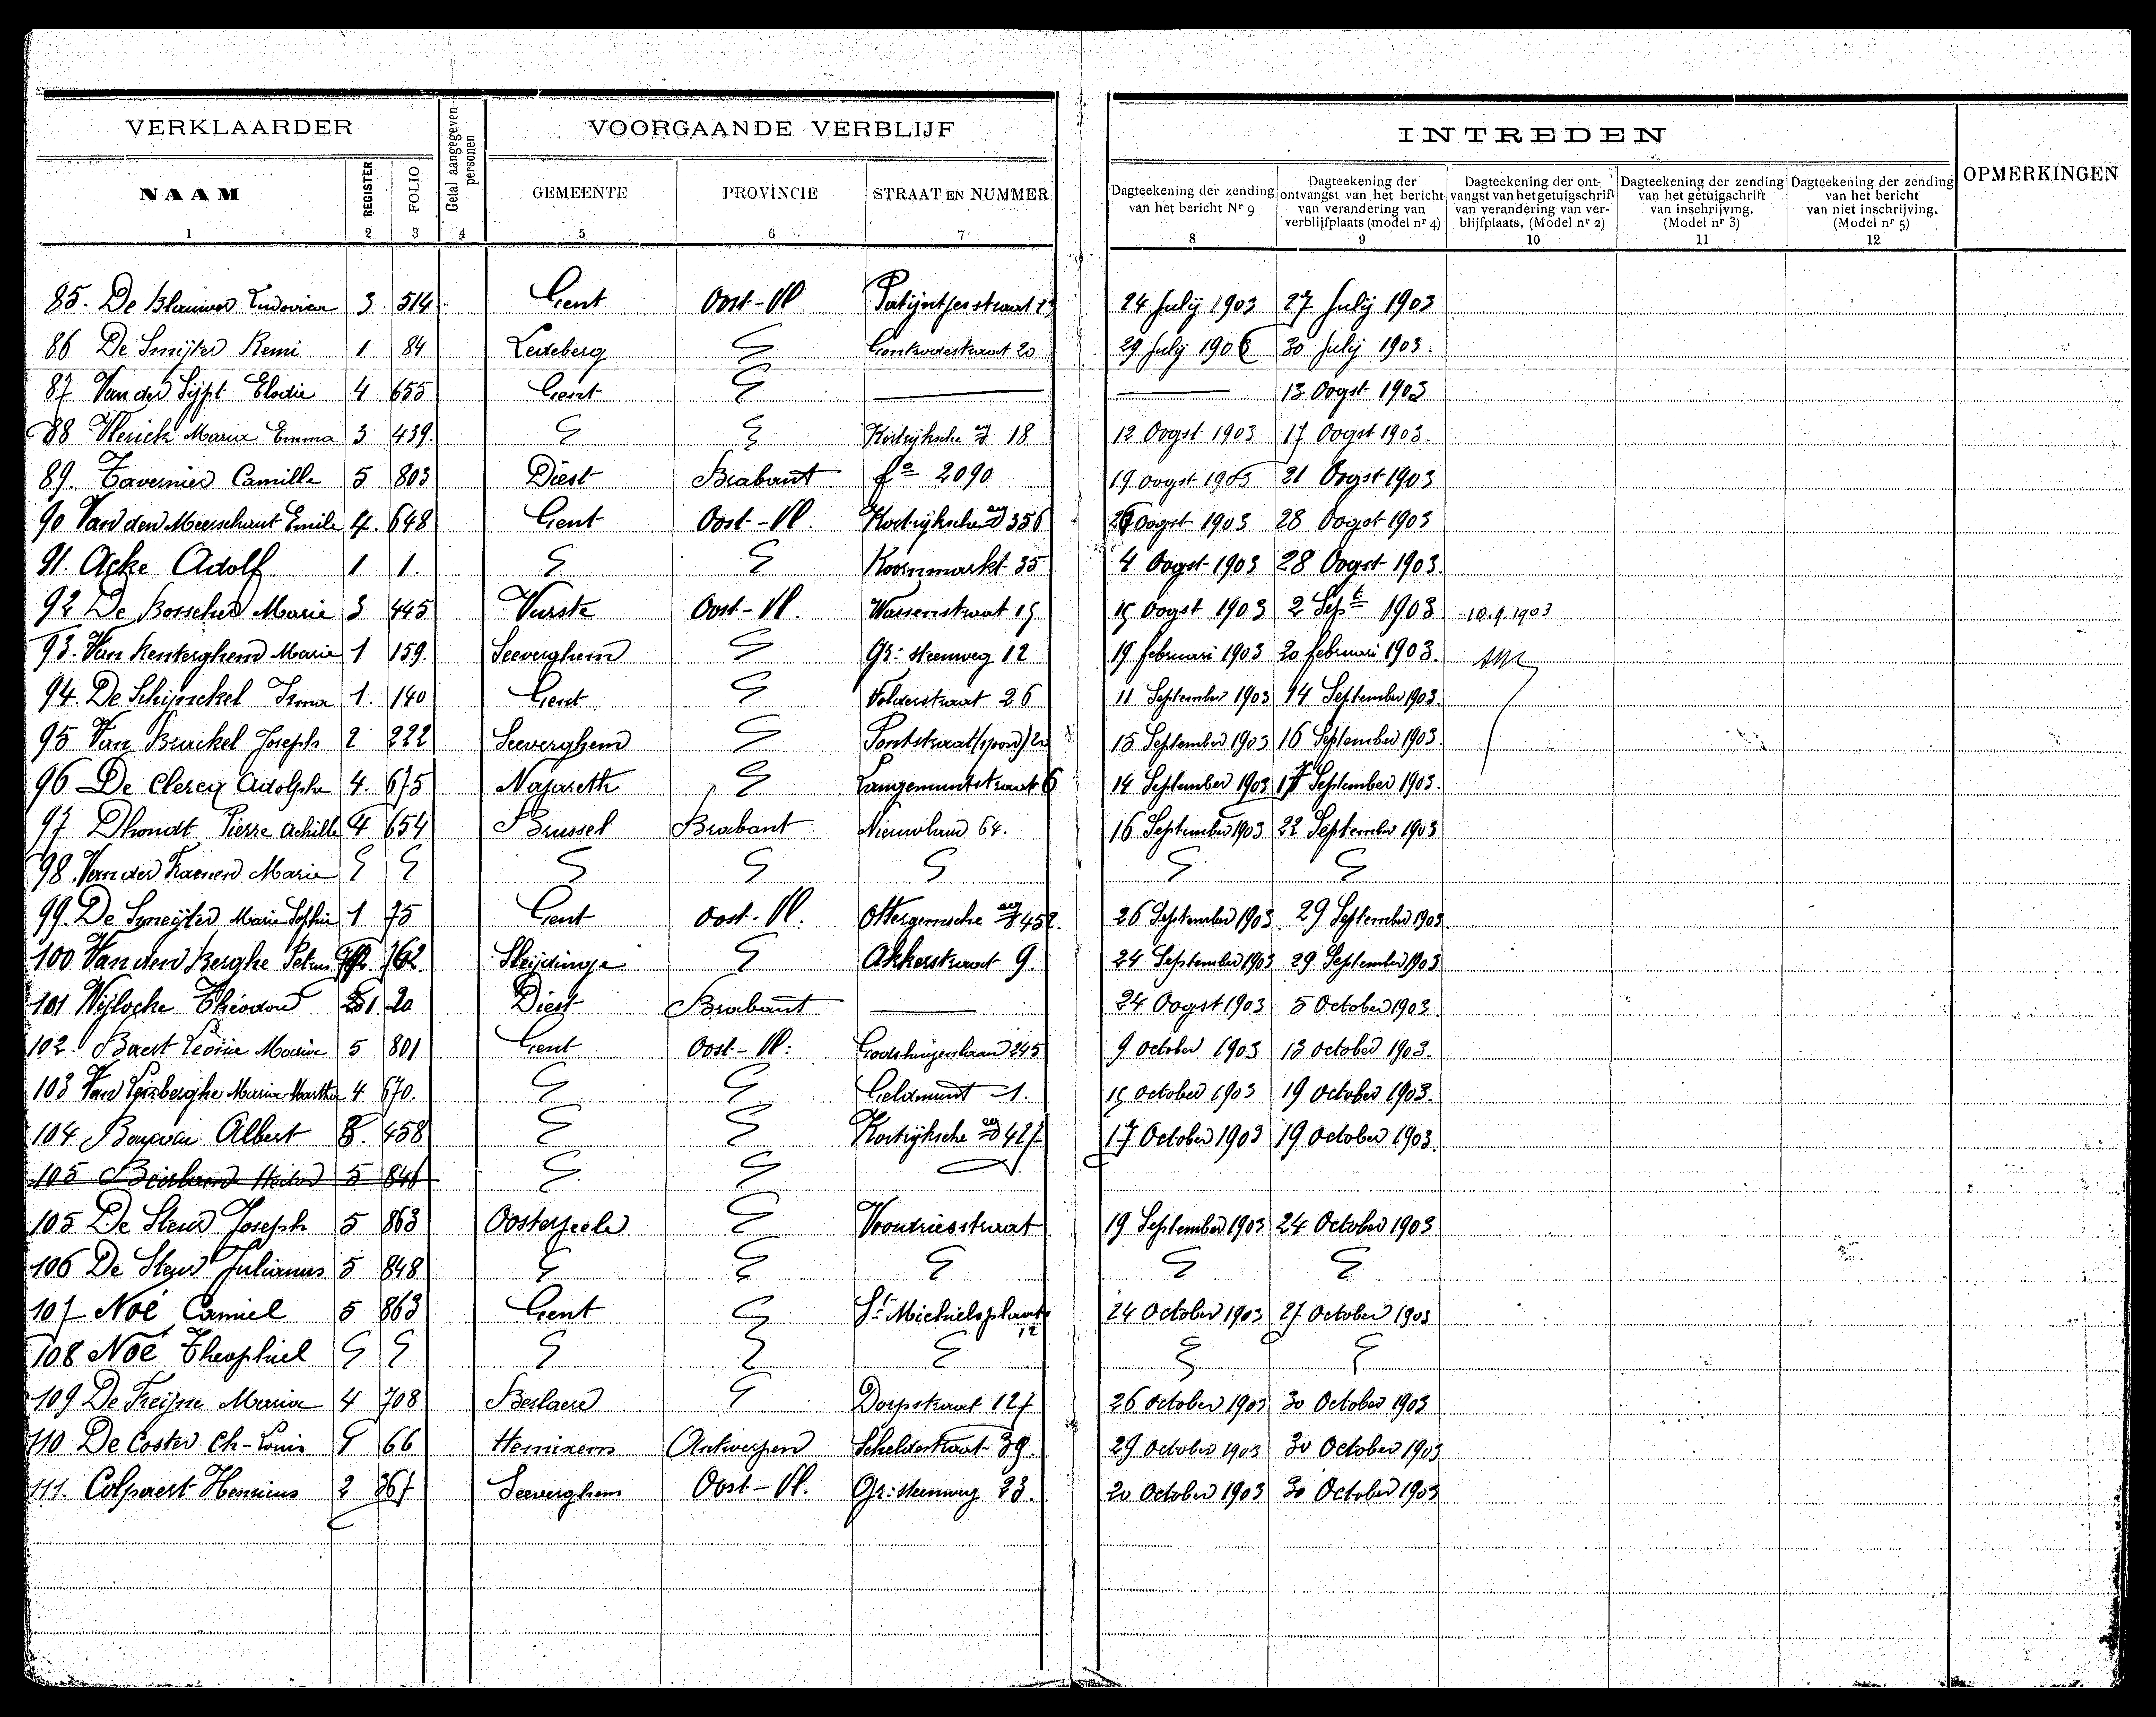 VERKLAARDER Getal aangegeven personen VOORGAANDE VERBLIJF INTREDEN OPMERKINGEN
NAAM REGISTER FOLIO GEMEENTE PROVINCIE STRAAT EN NUMMER
Dagteekening der zending van het bericht Nr 9
Dagteekening der ontvangst van het bericht van verandering van verblijfplaats (model nr 4)
Dagteekening der ont-vangst van het getuigschrift van verandering van ver-blijfplaats. (Model nr 2)
Dagteekening der zending van het getuigschrift van inschrijving. (Model nr 3)
Dagteekening der zending van het bericht van niet inschrijving. (Model nr 5)
1 2 3 4 5 6 7 8 9 10 11 12
85. De Blauwer Ludovica 3 514 Gent Oost-Vl 24 July 1903 27 July 1903
86 De Smijter Remi 1 84 Ledeberg 29 July 1903 30 July 1903.
87 Van der Sijpt Elodie 4 655 Gent — — 13 Oogst 1903
88 Maria Emma 3 439. Kortrijksche 18 12 Oogst 1903 17 Oogst 1903.
89. Tavernier Camille 5 803 Diest Brabant fo 2090 19 oogst 1903 21 Oogst 1903
90 Van den Meerschaut Emile 4. 648 Gent Oost-Vl. Kortrijksche 356 Oogst 1903 28 Oogst 1903
91. Acke Adolf 1 1. Koornmarkt 35 4 Oogst 1903 28 Oogst 1903.
92 De Bosscher Marie 3 445 Vurste Oost-Vl. 15 Oogst 1903 2 Sept 1903 10.9.1903
93. Van Renterghem Marie 1 159. Seeverghem Gr: steenweg 12 19 februari 1903 20 februari 1903.
94. De Schijnckel Irma 1. 140 Gent Volderstraat 26 11 September 1903 14 September 1903.
95 Van Joseph 2 222 Seeverghem 15 September 1903 16 September 1903.
96 De Clercq Adolphe 4. 675 Nazareth Langemuntstraat 6 14 September 1903 September 1903.
97 Dhondt Pierre Achille 4 654 Brussel Brabant Nieuwland 64. 16 September 1903 22 September 1903
98. Van der Marie
99. De Smeijter Marie Sophie 1 75 Gent Oost-Vl. Ottergemsche 26 September 1903. 29 September 1903
100 Van den Berghe Petrus 762 Sleijdinge Akkerstraat 9. 24 September 1903 29 September 1903
101 Théodor 1 20 Diest Brabant — 24 Oogst 1903 5 October 1903
102. Baert Léonie Maria 5 801 Gent Oost-Vl: 245 9 october 1903 13 october 1903.
103 Van Maria Martha 4 670. Geldmunt 1. 15 October 1903 19 October 1903.
104 Albert 458 Kortrijksche 427 17 October 1903 19 October 1903.
105 Hector 5 846
105 De Steur Joseph 5 863 Oosterzeele 19 September 1903 24 October 1903
106 De Steur Julianus 5 848
107 Noë Camiel 5 863 Gent St Michielsplaats 12 24 October 1903 27 October 1903
108 Noë Theophiel
109 De Maria 4 708 Berlaere Dorpstraat 127 26 October 1903 30 October 1903
110 De Coster Ch-Louis 66 Hemixem Antwerpen Scheldestraat 39. 29 October 1903 30 October 1903
111. Colpaert Henricus 2 367 Seeverghem Oost-Vl. Gr: steenweg 23. 20 October 1903 30 October 1903